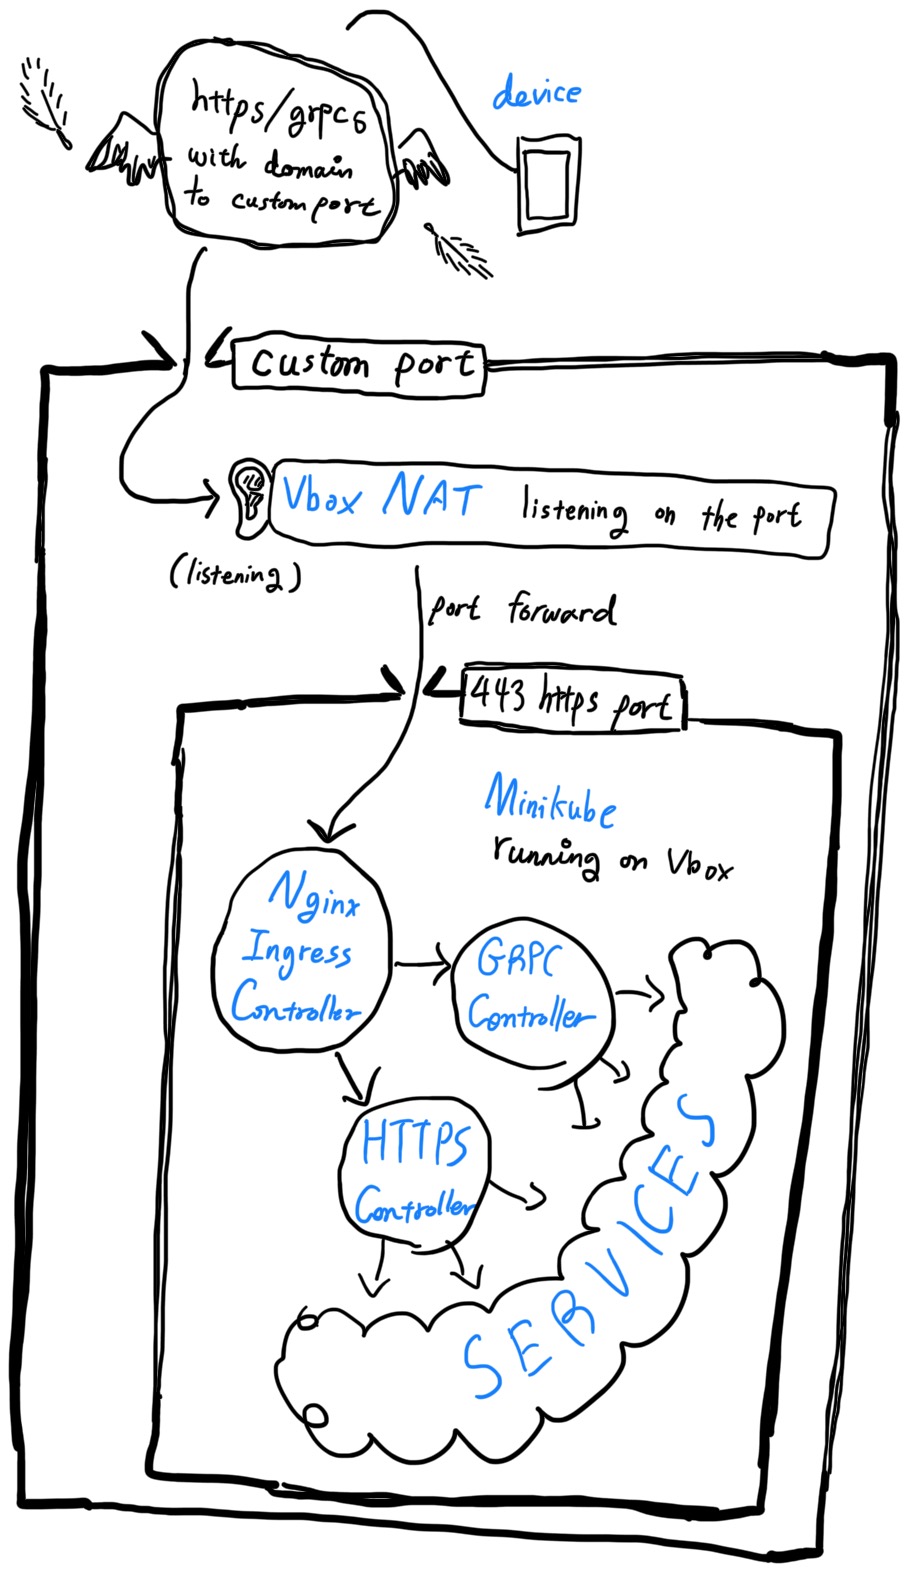 device
https/grpcs
with domain
to custom port
custom port
Vbox NAT listening on the port
(listening)
port forward
443 https port
Minikube
running on Vbox
Nginx
Ingress
Controller
GRPC
Controller
HTTPS
Controller
SERVICES